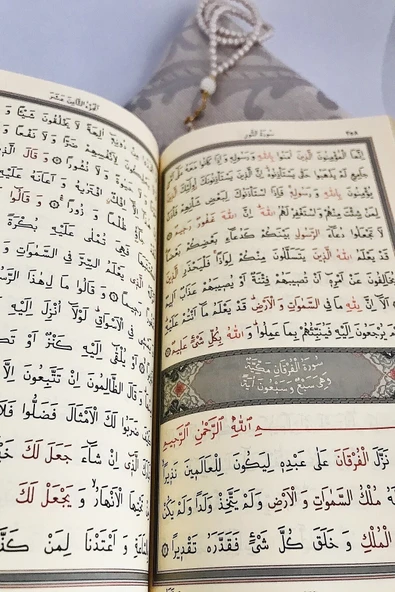 ٣٥٨ سُورَةُ النُّورِ
اِنَّمَا الْمُؤْمِنُونَ الَّذ۪ينَ اٰمَنُوا بِاللّٰهِ وَرَسُولِه۪ وَاِذَا كَانُوا مَعَهُ عَلٰٓى
جَامِعٍ لَمْ يَذْهَبُوا حَتّٰى يَسْتَأْذِنُوهُ اِنَّ الَّذ۪ينَ يَسْتَأْذِنُونَكَ اُو۬لٰٓئِكَ الَّذ۪ينَ
يُؤْمِنُونَ بِاللّٰهِ وَرَسُولِه۪ فَاِذَا اسْتَأْذَنُوكَ لِبَعْضِ شَأْنِهِمْ فَأْذَنْ
لِمَنْ شِئْتَ مِنْهُمْ وَاسْتَغْفِرْ لَهُمُ اللّٰهَ اِنَّ اللّٰهَ غَفُورٌ رَح۪يمٌ
لَا تَجْعَلُوا دُعَٓاءَ الرَّسُولِ بَيْنَكُمْ كَدُعَٓاءِ بَعْضِكُمْ بَعْضًا
قَدْ يَعْلَمُ اللّٰهُ الَّذ۪ينَ يَتَسَلَّلُونَ مِنْكُمْ لِوَاذًا فَلْيَحْذَرِ الَّذ۪ينَ
يُخَالِفُونَ عَنْ اَمْرِه۪ٓ اَنْ تُص۪يبَهُمْ فِتْنَةٌ اَوْ يُص۪يبَهُمْ عَذَابٌ اَل۪يمٌ
اَلَٓا اِنَّ لِلّٰهِ مَا فِي السَّمٰوَاتِ وَالْاَرْضِ قَدْ يَعْلَمُ مَٓا اَنْتُمْ عَلَيْهِ
يُرْجَعُونَ اِلَيْهِ فَيُنَبِّئُهُمْ بِمَا عَمِلُوا وَاللّٰهُ بِكُلِّ شَيْءٍ عَل۪يمٌ
سُورَةُ الْفُرْقَانِ مَكِّيَّةٌ
وَهِيَ سَبْعٌ وَسَبْعُونَ اٰيَةً
اللّٰهِ الرَّحْمٰنِ الرَّح۪يمِ
نَزَّلَ الْفُرْقَانَ عَلٰى عَبْدِه۪ لِيَكُونَ لِلْعَالَم۪ينَ نَذ۪يرًا
لَهُ مُلْكُ السَّمٰوَاتِ وَالْاَرْضِ وَلَمْ يَتَّخِذْ وَلَدًا وَلَمْ يَكُنْ
الْمُلْكِ وَخَلَقَ كُلَّ شَيْءٍ فَقَدَّرَهُ تَقْد۪يرًا
اَلْجُزْءُ الثَّامِنَ عَشَرَ
دُونِه۪ٓ اٰلِهَةً لَا يَخْلُقُونَ شَيْـًٔا وَ
لِاَنْفُسِهِمْ ضَرًّا وَلَا نَفْعًا وَ
حَيٰوةً وَلَا نُشُورًا وَقَالَ
افْتَرٰيهُ وَاَعَانَهُ عَلَيْهِ
ظُلْمًا وَزُورًا
فَهِيَ تُمْلٰى عَلَيْهِ بُكْرَةً
الَّذ۪ي يَعْلَمُ السِّرَّ فِي السَّمٰوَاتِ
رَح۪يمًا وَقَالُوا مَالِ هٰذَا
فِي الْاَسْوَاقِ لَوْلَٓا اُنْزِلَ اِلَيْهِ
اَوْ يُلْقٰٓى اِلَيْهِ كَنْزٌ اَوْ
وَقَالَ الظَّالِمُونَ اِنْ تَتَّبِعُونَ اِلَّا
ضَرَبُوا لَكَ الْاَمْثَالَ فَضَلُّوا فَلَا
الَّذ۪ٓي اِنْ شَٓاءَ جَعَلَ لَكَ
تَحْتِهَا الْاَنْهَارُ وَيَجْعَلْ لَكَ
وَاَعْتَدْنَا لِمَنْ